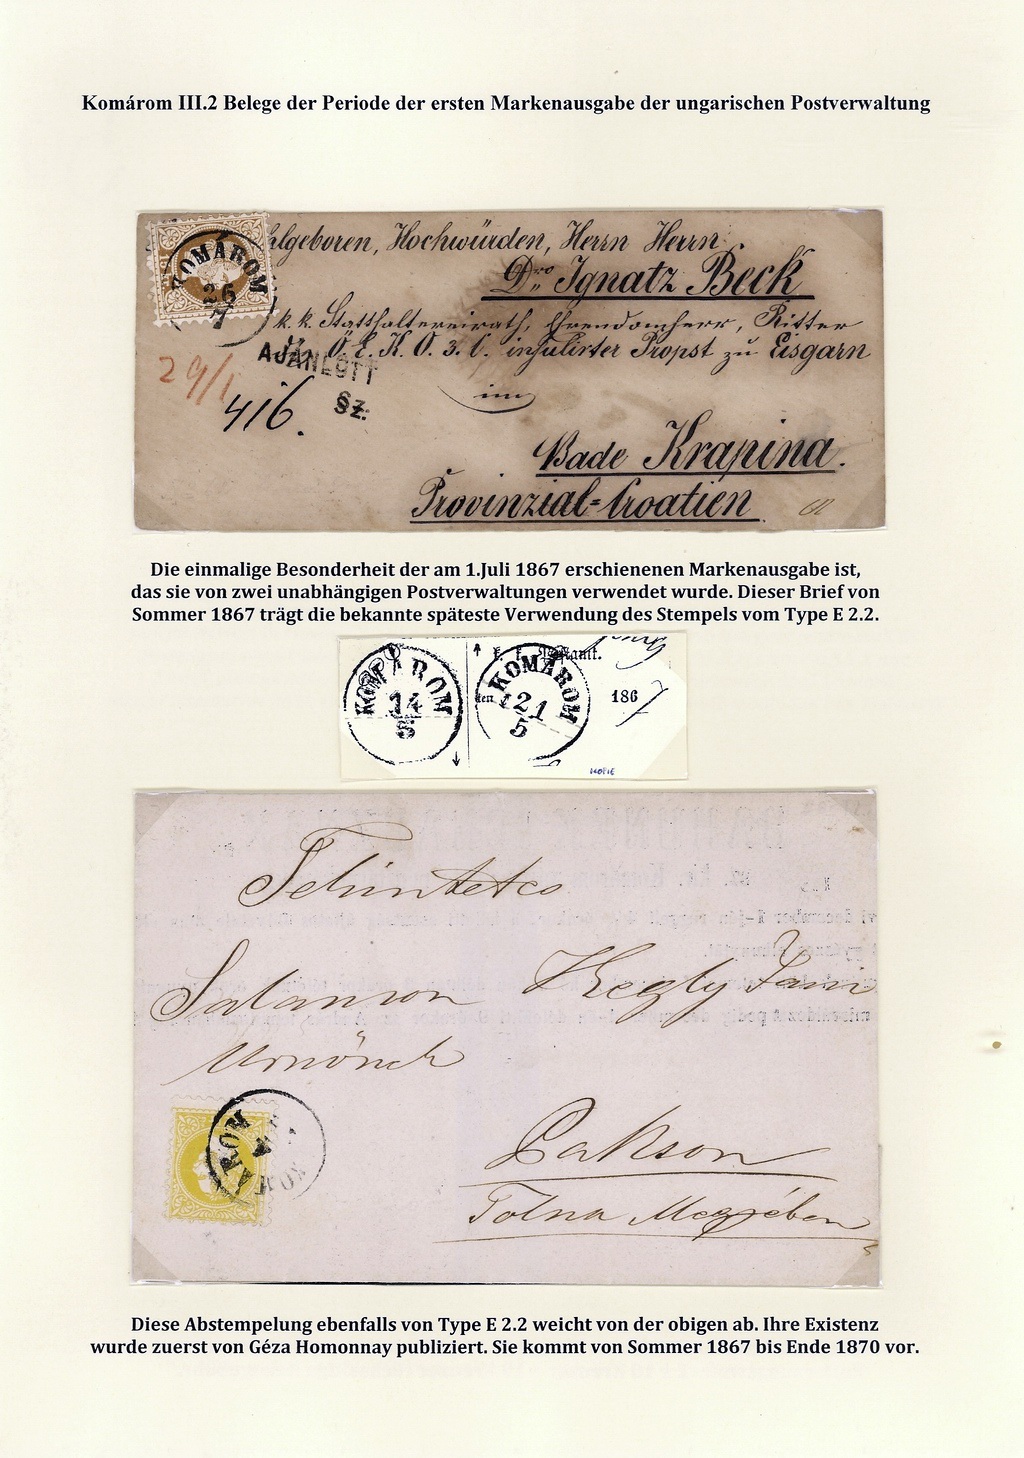 Komárom III.2 Belege der Periode der ersten Markenausgabe der ungarischen Postverwaltung
hlgeboren, Hochwürden, Herrn Herrn
Dro Ignatz Beck
k. k. Statthaltereirath, Ehrendomherr, Ritter
O. E. K. O. 3. C. insulirter Propst zu Eisgarn
im
Bade Krapina.
Provinzial=Croatien
KOMÁROM
26
7
AJÁNLOTT
Sz.
29/1
416.
Die einmalige Besonderheit der am 1.Juli 1867 erschienenen Markenausgabe ist,
das sie von zwei unabhängigen Postverwaltungen verwendet wurde. Dieser Brief von
Sommer 1867 trägt die bekannte späteste Verwendung des Stempels vom Type E 2.2.
KOMÁROM
14
5
KOMÁROM
21
5
den
186
KOPIE
Tekintetes
Salamon Kegly Jani
Urnönek
Pakson
Tolna Megyében
KOMÁROM
Diese Abstempelung ebenfalls von Type E 2.2 weicht von der obigen ab. Ihre Existenz
wurde zuerst von Géza Homonnay publiziert. Sie kommt von Sommer 1867 bis Ende 1870 vor.